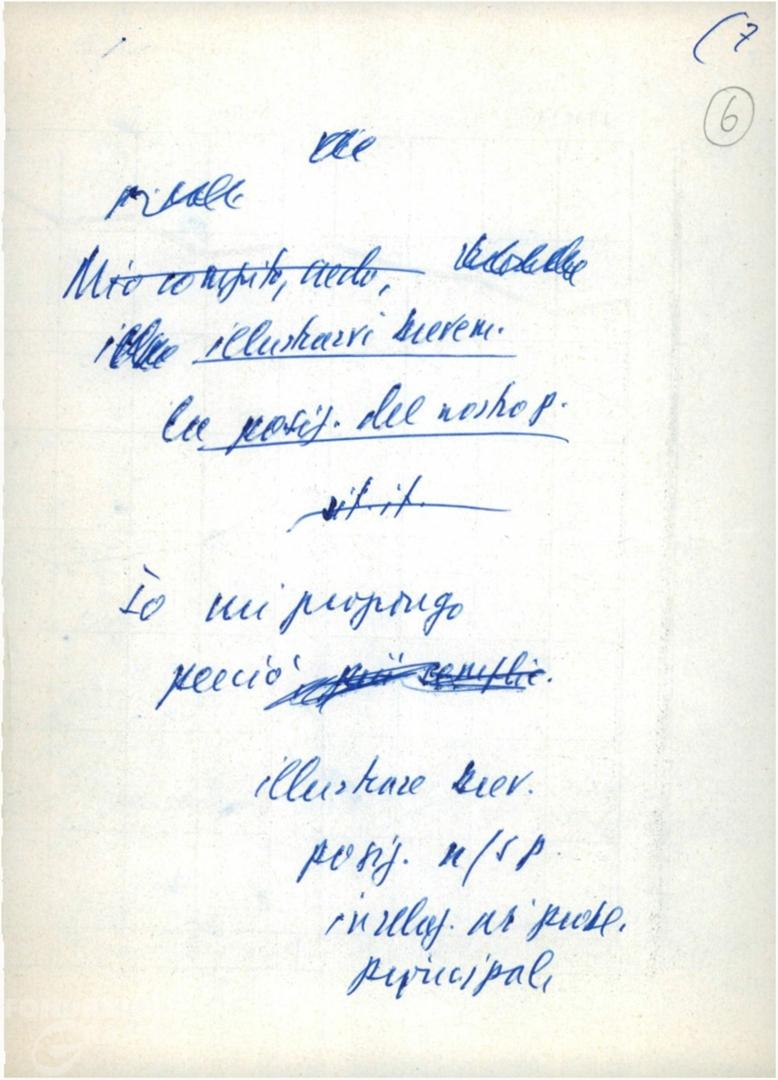 (7
6
che
Mio compito, credo,
illustrarvi brevem.
la posiz. del nostro p.
sit. it.
Io mi propongo
perciò più semplic.
illustrare brev.
posiz. n/ S P
in relaz. ai probl.
principali